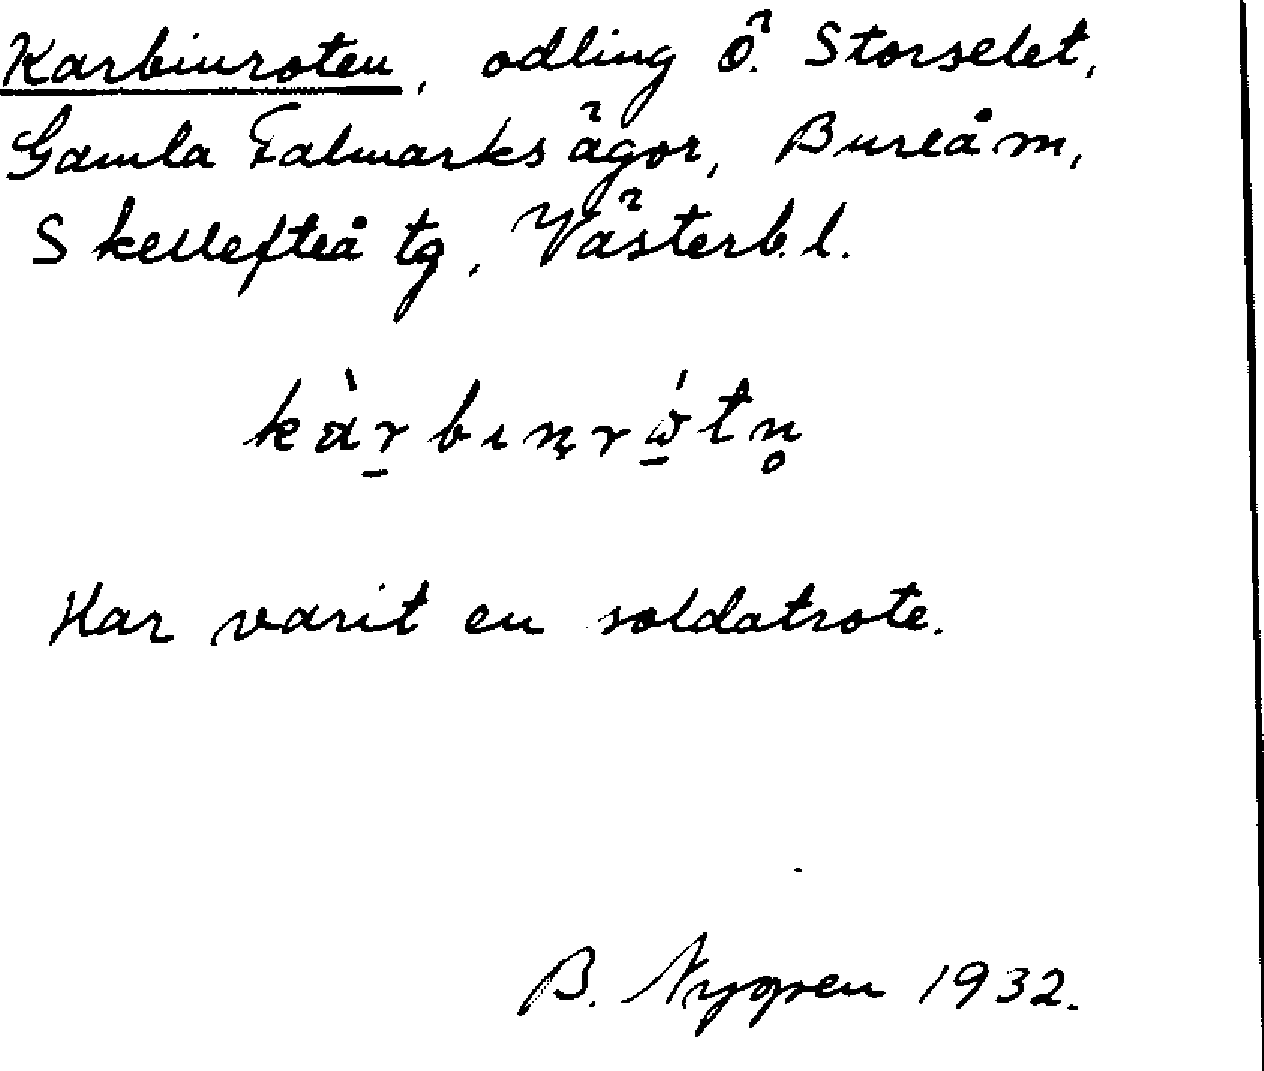 Karbinroten, odling Ö. Storselet,
Gamla Falmarks ägor, Bureå m,
Skellefteå tg, Västerb. l.
kàr̠bɩn̡rώ̠tn̥
Har varit en soldatrote.
B. Nygren 1932.